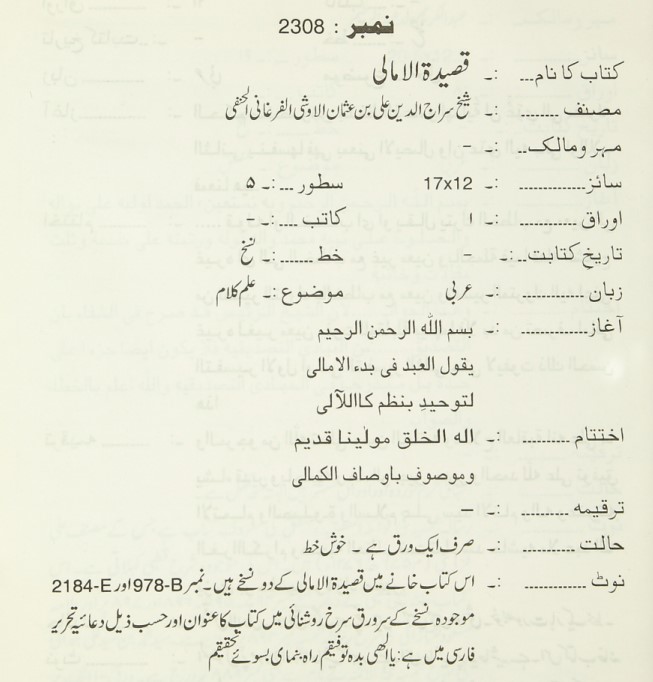 نمبر : 2308
کتاب کا نام... :۔ قصیدۃ الامالی
مصنف ........ :۔ شیخ سراج الدین علی بن عثمان الاوشی الفرغانی الحنفی
مہر و مالک.. :۔ -
سائز............. :۔ 17x12 سطور ...:۔ ۵
اوراق .......... :۔ ۱ کاتب ....:۔ -
تاریخ کتابت..:۔ - خط ......:۔ نسخ
زبان ........... :۔ عربی موضوع :۔ علم کلام
آغاز............ :۔ بسم الله الرحمن الرحیم
یقول العبد فی بدء الامالی
لتوحیدِ بنظم کااللآلی
اختتام ......... :۔ الہ الخلق مولٰینا قدیم
وموصوف باوصاف الکمالی
ترقیمہ ......... :۔ –
حالت .......... :۔ صرف ایک ورق ہے ۔ خوش خط
نوٹ ............ :۔ اس کتاب خانے میں قصیدۃ الامالی کے دو نسخے ہیں۔ نمبر 978-B اور 2184-E
موجودہ نسخے کے سرورق سرخ روشنائی میں کتاب کا عنوان اور حسب ذیل دعائیہ تحریر
فارسی میں ہے: یا الٰهی بدہ توفیقم راہ بنمای بسوئے تحقیقم